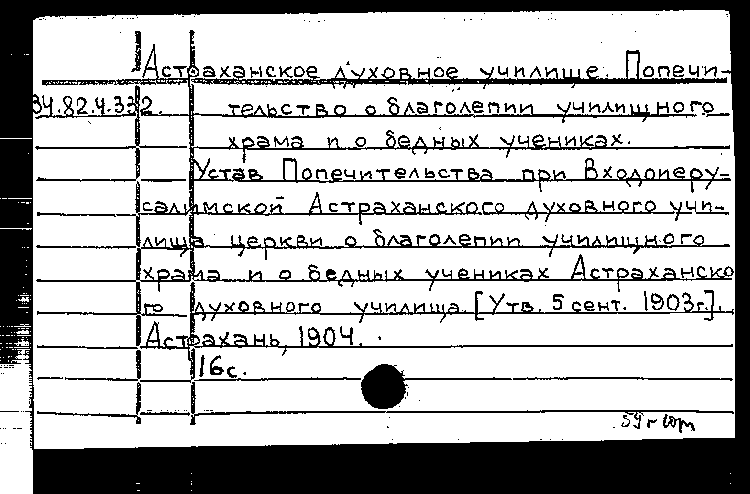 Астраханское духовное училище. Попечи-
34.82.4.332. тельство о благолепии училищного
храма и о бедных учениках.
Устав Попечительства при Входоиеру-
салимской Астраханского духовного учи-
лища церкви о благолепии училищного
храма и о бедных учениках Астраханско
го духовного училища. [Утв. 5 сент. 1903г.].
Астрахань, 1904.
16с.